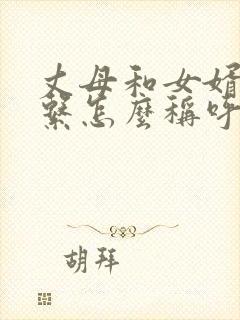 丈母和女婿
繫怎麼稱呼
胡拜